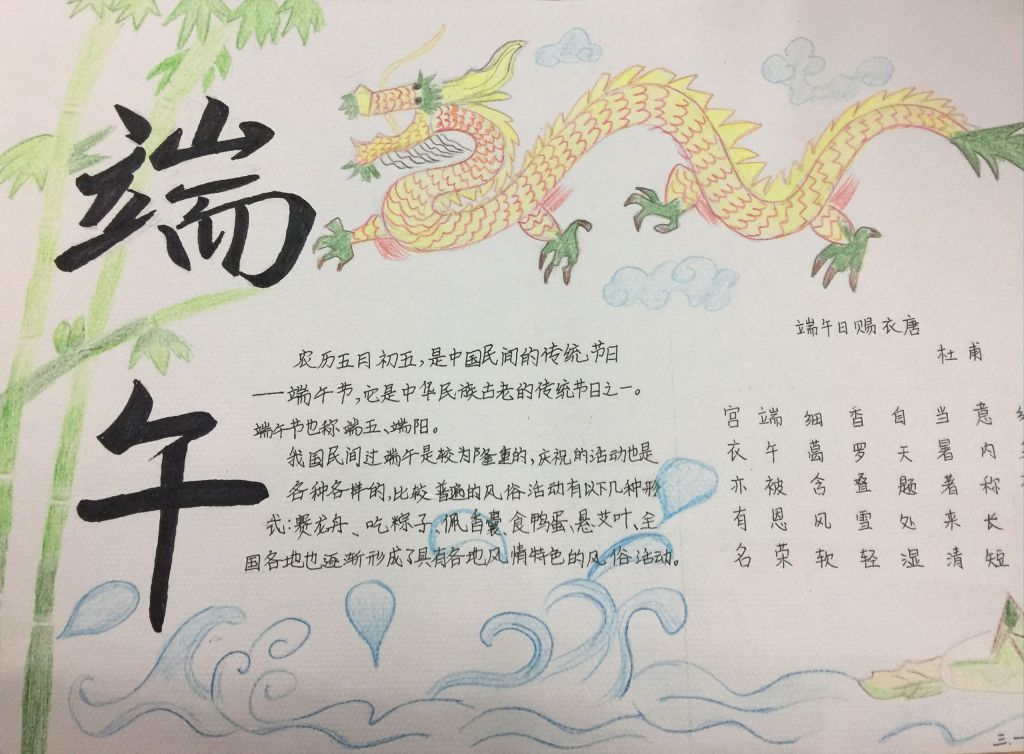 端午
农历五月初五,是中国民间的传统节日
——端午节,它是中华民族古老的传统节日之一。
端午节也称端五、端阳。
我国民间过端午是较为隆重的,庆祝的活动也是
各种各样的,比较普遍的风俗活动有以下几种形
式:赛龙舟、吃粽子、佩香囊、食鸭蛋、悬艾叶、全
国各地也逐渐形成了具有各地风情特色的风俗活动。
端午日赐衣唐
杜甫
宫衣亦有名
端午被恩荣
细葛含风软
香罗叠雪轻
自天题处湿
当暑著来清
意内称长短
三.一